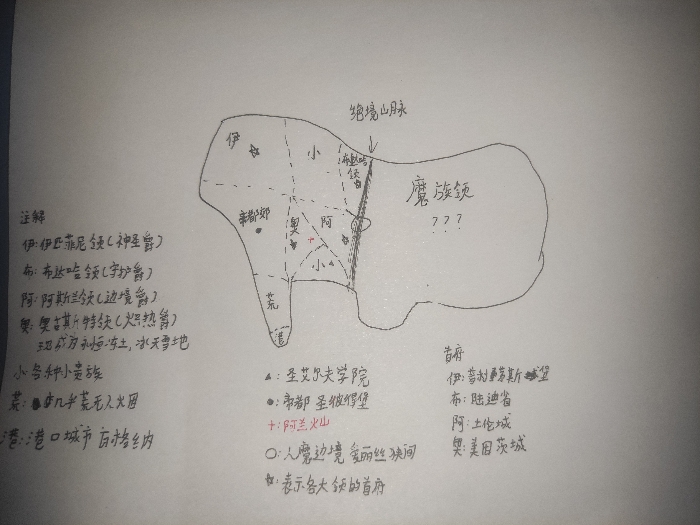 绝境山脉
伊
小
布达哈
领
魔族领
???
帝都郊
奥
阿
小
荒
港
注解
伊:伊亚菲尼领(神圣爵)
布:布达哈领(守护爵)
阿:阿斯兰领(边境爵)
奥:奥古斯特领(炽热爵)
现成为永恒冻土,冰天雪地
小:各种小贵族
荒:几乎荒无人烟
港:港口城市
▲:圣艾尔夫学院
●:帝都圣彼得堡
+:阿兰山
○:人魔边境爱丽丝狭间
☆:表示各大领的首府
首府
伊:普利 斯堡
布:陆迪省
阿:土伦城
奥:美因茨城